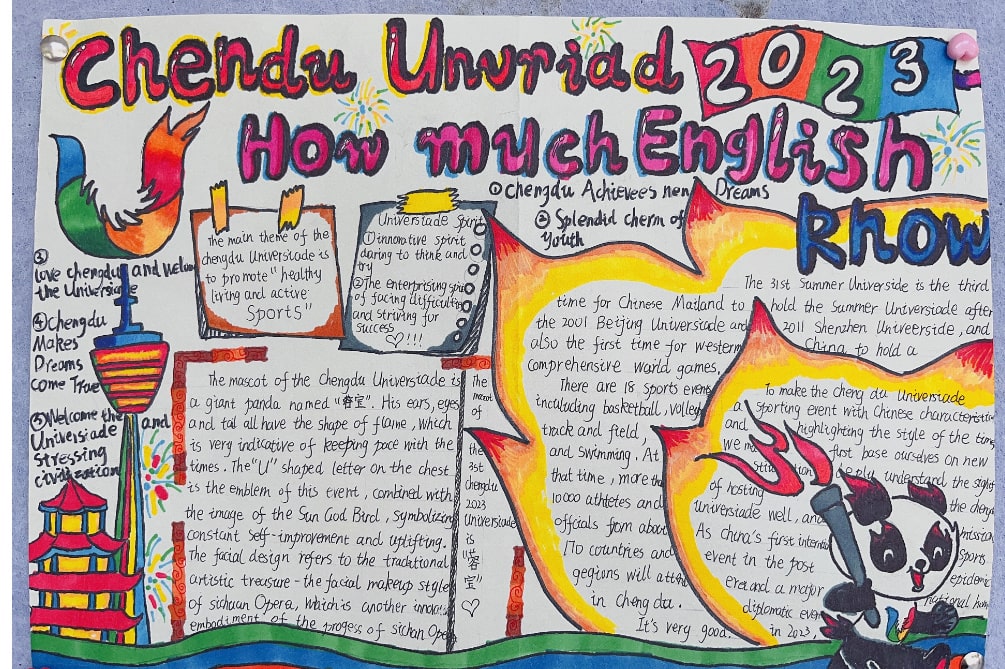 Chendu Unvriad
2023
How much English
Know
① Chengdu Achievees nen Dreams
② Splendid cherm of
Youth
③
love chengdu and
the Universiade
④ Chengdu
Makes
Dreams
come True
⑤ Welcome the
Universiade and
stressing
civilization
The main theme of the
chengdu Universiade is
to promote "healthy
living and active
Sports"
Universiade Spirit
① innorative spirit
daring to think and
try
② The enterprising
of facing difficulties
and striving for
success
♡!!!
The mascot of the Chengdu Universiade is
a giant panda named "蓉宝". His ears, eyes
and tal all have the shape of flame, which
is very indicative of keeping pace with the
times. The "U" shaped letter on the chest
is the emblem of this event, combined with
the image of the Sun God Bird, symbolizing
constant self-improvement and uplifting.
The facial design refers to the traditional
artistic treasure - the facial makeup style
of sichuan Opera, which is another
embodiment of the progess of sichan Opera
The
mascot
of
the
31st
chengdu
2023
Universiade
is
"蓉
宝"
♡
The 31st Summer Universide is the third
time for Chinese Mailand to hold the Summer Universiade after
the 2001 Beijing Universiade and 2011 Shenzhen Univeerside, and
also the first time for western China to hold a
comprehensive world games,
There are 18 sports events
including basketball, volley
track and field,
and swimming. At
that time, more than
10000 athletes and
officials from about
170 countries and
gegions will attend
in Chengdu.
It's very good.
To make the cheng du Universiade
a sporting event with Chinese characteristics
and highlighting the style of the times
we first base ourselves on new
deeply understand the
of hosting the
universiade well, and
As china's first
event in the post
era and a major
diplomatic event
in 2023,
mission
sports
epidemic
national